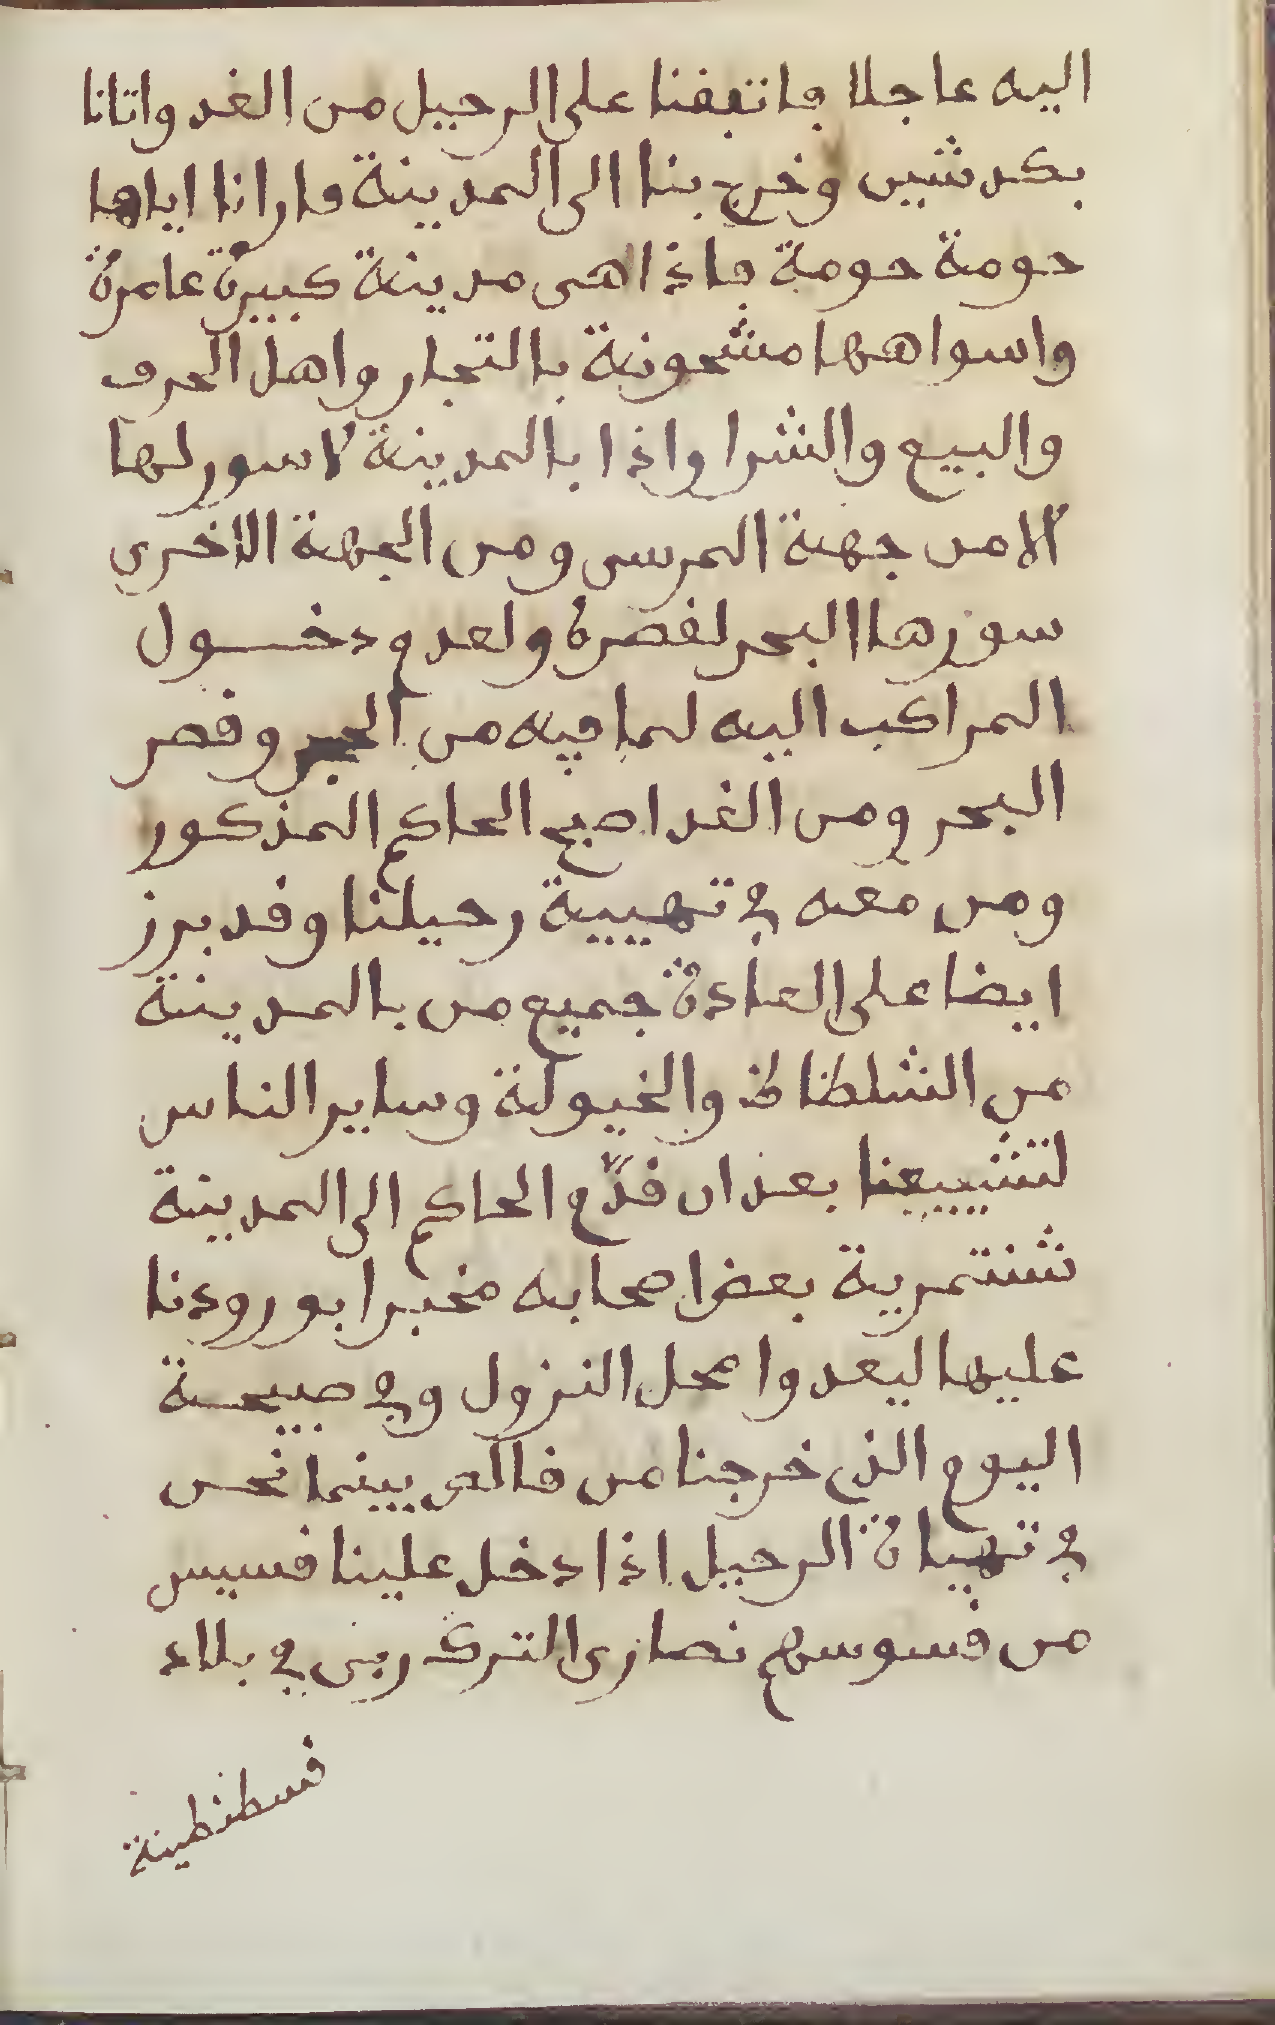 اليه عاجلا فاتفقنا على الرحيل من الغد واتانا
بكدشين وخرج بنا الى المدينة فارانا اياها
حومة حومة فاذا هى مدينة كبيرة عامرة
واسواهها مشحونة بالتجار واهل الحرف
والبيع والشرا واذا بالمدينة لا سور لها
الا من جهة المرسى ومن الجهة الاخرى
سورها البحر لقصرة ولعدم دخول
المراكب اليه لما فيه من الحجر وقصر
البحر ومن الغد اصبح الحاكم المذكور
ومن معه في تهييية رحيلنا وقد برز
ايضا على العادة جميع من بالمدينة
من الشلطاظ والخيولة وساير الناس
لتشييعنا بعد ان قدّم الحاكم الى المدينة
شنتمرية بعض اصحابه مخبرا بورودنا
عليها ليعدوا محل النزول وفي صبيحة
اليوم الذي خرجنا من قالص بينما نحن
في تهياة الرحيل اذا دخل علينا قسيس
من قسوسهم نصارى الترك ربى في بلاد
قسطنطينة